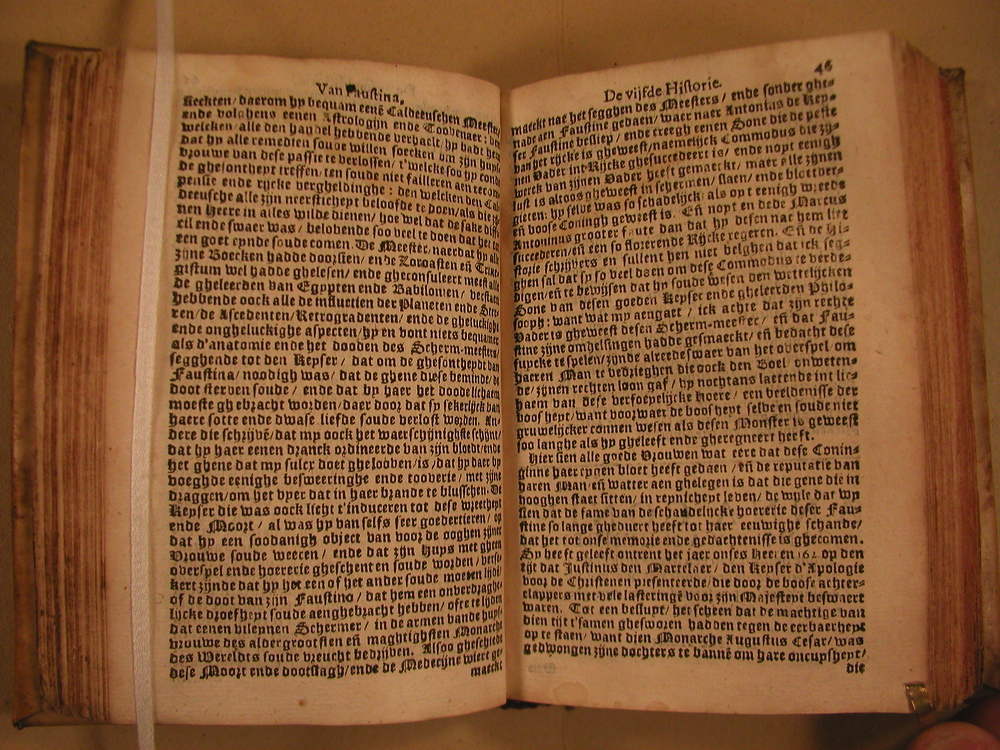 Van Faustina.
slechten/ daerom hy bequam eenē Caldeeuschen Meester/
ende volghens eenen Astrologijn ende Toovenaer: den
welcken/ alle den handel hebbende verhaelt/ hy badt hem
dat hy alle remedien soude willen soecken om zijn huys-
vrouwe van dese passie te verlossen/ t'welcke soo hy conde
de ghesontheyt treffen/ ten soude niet failleren aen recom-
pensie ende rijcke vergheldinghe: den welcken den Cal-
deeusche alle zijn neerstichept beloofde te doen/ als die zij-
nen Heere in alles wilde dienen/ hoe wel dat de sake diffi-
cil ende swaer was/ belobende soo veel te doen dat het tot
een goet eynde soude comen. De Meester/ naerdat hy alle
zijne Boecken hadde doorsien/ ende Zoroasten eñ Trime-
gistum wel hadde ghelesen/ ende gheconsuleert meest alle
de gheleerden van Egypten ende Babilonien/ verstaen
hebbende oock alle de influctien der Planeten ende Ster-
ren/ de Ascedenten/ Retrogradenten/ ende de gheluckighe
ende ongheluckighe aspecten/ hy en vont niets bequamer
als d'anatomie ende het dooden des Scherm-meesters/
segghende tot den Keyser/ dat om de ghesontheydt van
Faustina/ noodigh was/ dat de ghene diese beminde/ de
doot sterven soude/ ende dat hy haer het doode lichaem
moeste ghebracht worden/ daer door dat sy sekerlijck van
haere sotte ende dwase liefde soude verlost worden. An-
dere die schrijvē/ dat my oock het waerschijnighste schijnt/
dat hy haer eenen dranck ordineerde van zijn bloedt/ ende
het ghene dat my sulcx doet ghelooben/ is/ dat hy daer by
voeghde eenighe besweeringhe ende tooverie/ met zijne
draggen/ om het vyer dat in haer brande te blusschen. De
Keyser die was oock licht t'induceren tot dese wreetheyt
ende Moort/ al was hy van selfs seer goedertieren/ op
dat hy een soodanigh object van voor de ooghen zijner
Vrouwe soude weeren/ ende dat zijn Huys met gheen
overspel ende hoererie gheschent en soude worden/ versi-
kert zijnde dat hy het een of het ander soude moeten lijdē/
of de doot van zijn Faustina/ dat hem een onverdraghe-
lijcke droefheyt soude aenghebracht hebben/ ofte te lijden
dat eenen vileynen Schermer/ in de armen bande huys-
vrouwe des aldergrootsten eñ maghtighsten Monarche
des Wereldts soude vreucht bedrijben. Alsoo gheschiede
dese Moort ende dootslagh/ ende de Medecijne wiert ge-
maeckt
De vijfde Historie.
46
maeckt nae het segghen des Meesters/ ende sonder ghe-
nade aen Faustine gedaen/ waer naer Antonius de Key-
ser Faustine besliep/ ende creegh eenen Sone die de peste
van het rijcke is gheweest/ naemelijck Commodus die zij-
nen Vader int Rijcke ghesuccedeert is/ ende nopt eenigh
werck van zijnen Vader heeft gemaeckt/ maer alle zijnen
lust is altoos gheweest in schermen/ slaen/ ende bloetver-
gieten: hy selve was so schadelijck/ als oyt eenigh wreede
eñ boose Coningh geweest is. Eñ nopt en dede Marcus
Antoninus grooter faute dan dat hy desen nae hem liet
succederen/ eñ een so florerende Rijcke regeren. Eñ de Hi-
storie schrijvers en sullent hen niet belghen dat ick seg-
ghen sal dat sy so veel daen om dese Commodus te verde-
digen/ eñ te bewijsen dat hy soude wesen den wettelijcken
Sone van desen goeden Keyser ende gheleerden Philo-
sooph: want wat my aengaet/ ick achte dat zijn rechte
Vader is gheweest desen Scherm-meester/ eñ dat Fau-
stine zijne omhelsingen hadde gesmaeckt/ eñ bedacht dese
fupcke te spelen/ zijnde alreede swaer van het overspel/ om
haeren Man te bedrieghen die oock den Boel/ onweten-
de/ zijnen rechten loon gaf/ hy nochtans laetende int lic-
haem van dese verfoeyelijcke hoere/ een beeldenisse der
boosheyt/ want voorwaer de boosheyt selbe en soude niet
gruwelijcker connen wesen als desen Monster is geweest
soo langhe als hy gheleeft ende gheregneert heeft.
Hier sien alle goede Vrouwen wat eere dat dese Conin-
ginne haer eygen bloet heeft gedaen/ eñ de reputatie van
haren Man/ eñ watter aen ghelegen is dat die gene die in
hooghen staet sitten/ in reynicheyt leven/ de wyle dat wy
sien dat de fame van de schandelijcke hoererie deser Fau-
stine so lange gheduert heeft tot haer eeuwighe schande/
dat het tot onse memorie ende gedachtenisse is ghecomen.
Sy heeft geleeft ontrent het jaer onses Heeren 162 op den
tijt dat Justinus den Martelaer/ den Keyser d'Apologie
voor de Christenen presenteerde/ die door de boose achter-
clappers met vele lasteringē voor zijn Majesteyt beswaert
waren. Tot een besluyt/ het scheen dat de machtige van
dien tijt t'samen ghesworen hadden tegen de eerbaerheyt
op te staen/ want dien Monarche Augustus Cesar/ was
gedwongen zijne dochters te bannē om hare oncuysheyt/
die